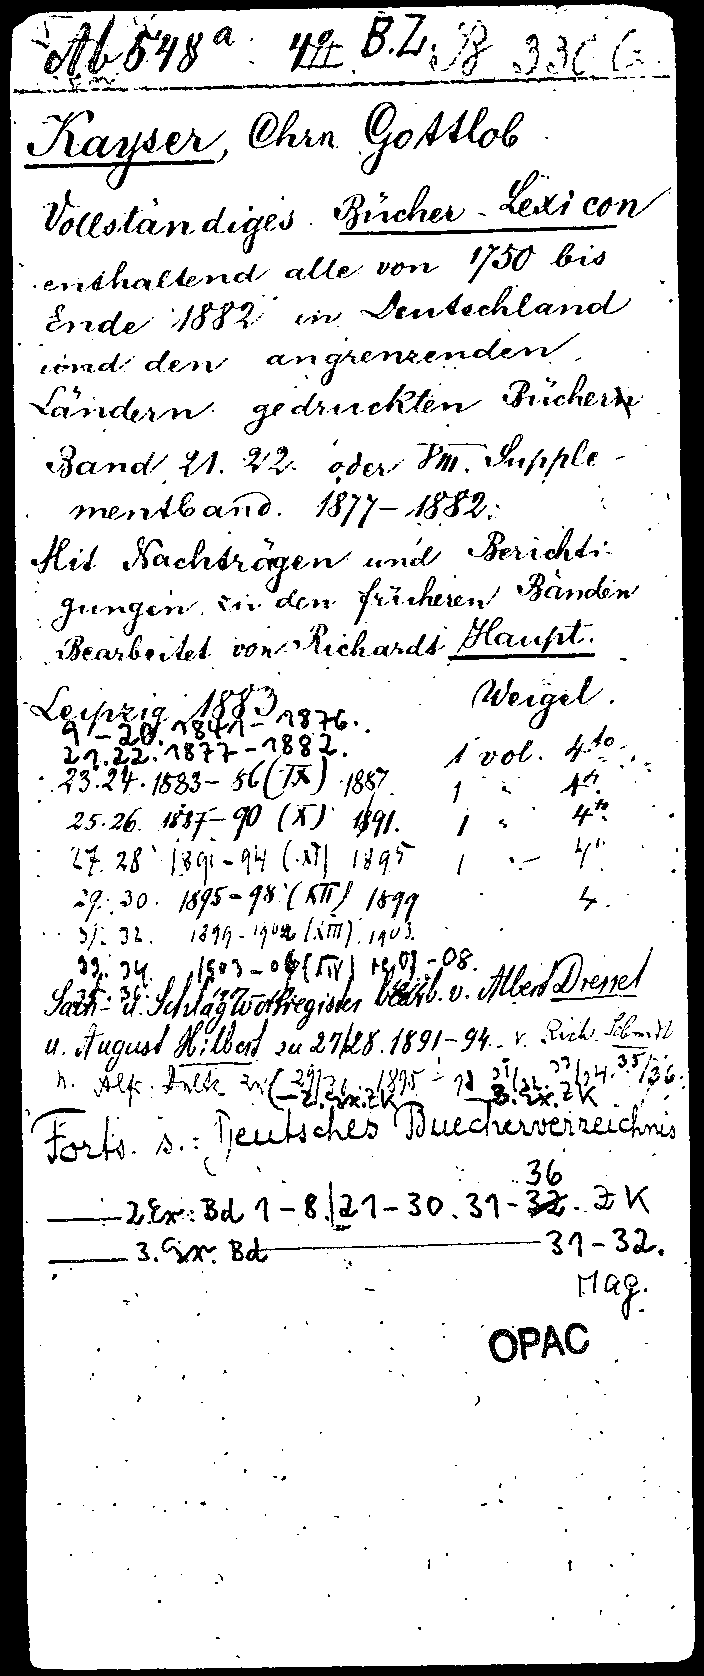 Ab 548ª 4º B.Z. B 330
Kayser, Chrn Gottlob
Vollständiges Bücher-Lexicon
enthaltend alle von 1750 bis
Ende 1882 in Deutschland
und den angrenzenden
Ländern gedruckten Bücher
Band 21. 22. oder Supple-
mentband. 1877-1882.
Mit Nachträgen und Berichti-
gungen zu den früheren Bänden
Bearbeitet von Richardt Haupt.
Leipzig 1883 Weigel.
9-20. 1841-1876.
21.22. 1877-1882. 1 vol. 4to
23.24. 1883-86 (IX) 1887 1 " 4to
25.26. 1887-90 (X) 1891. 1 " 4to
27. 28 1891-94 (XI) 1895 1 " 4º
29. 30. 1895-98 (XII) 1899 4.
31. 32. 1899-1902 (XIII) 1903.
33. 34. 1903-06 (XIV) -08.
Sach- u. Schlagwortregister bearb. v. Albert Dressel
u. August Hilbert zu 27/28. 1891-94. v. Rich. Schmidt
u. Alfr. zu 1895 33/34. 35/36.
2. Ex. ZK 3. Ex. ZK
Forts. s.: Deutsches Buecherverzeichnis
36
2. Ex: Bd 1-8. 21-30. 31-32. ZK
3. Ex. Bd 31-32.
Mag.
OPAC